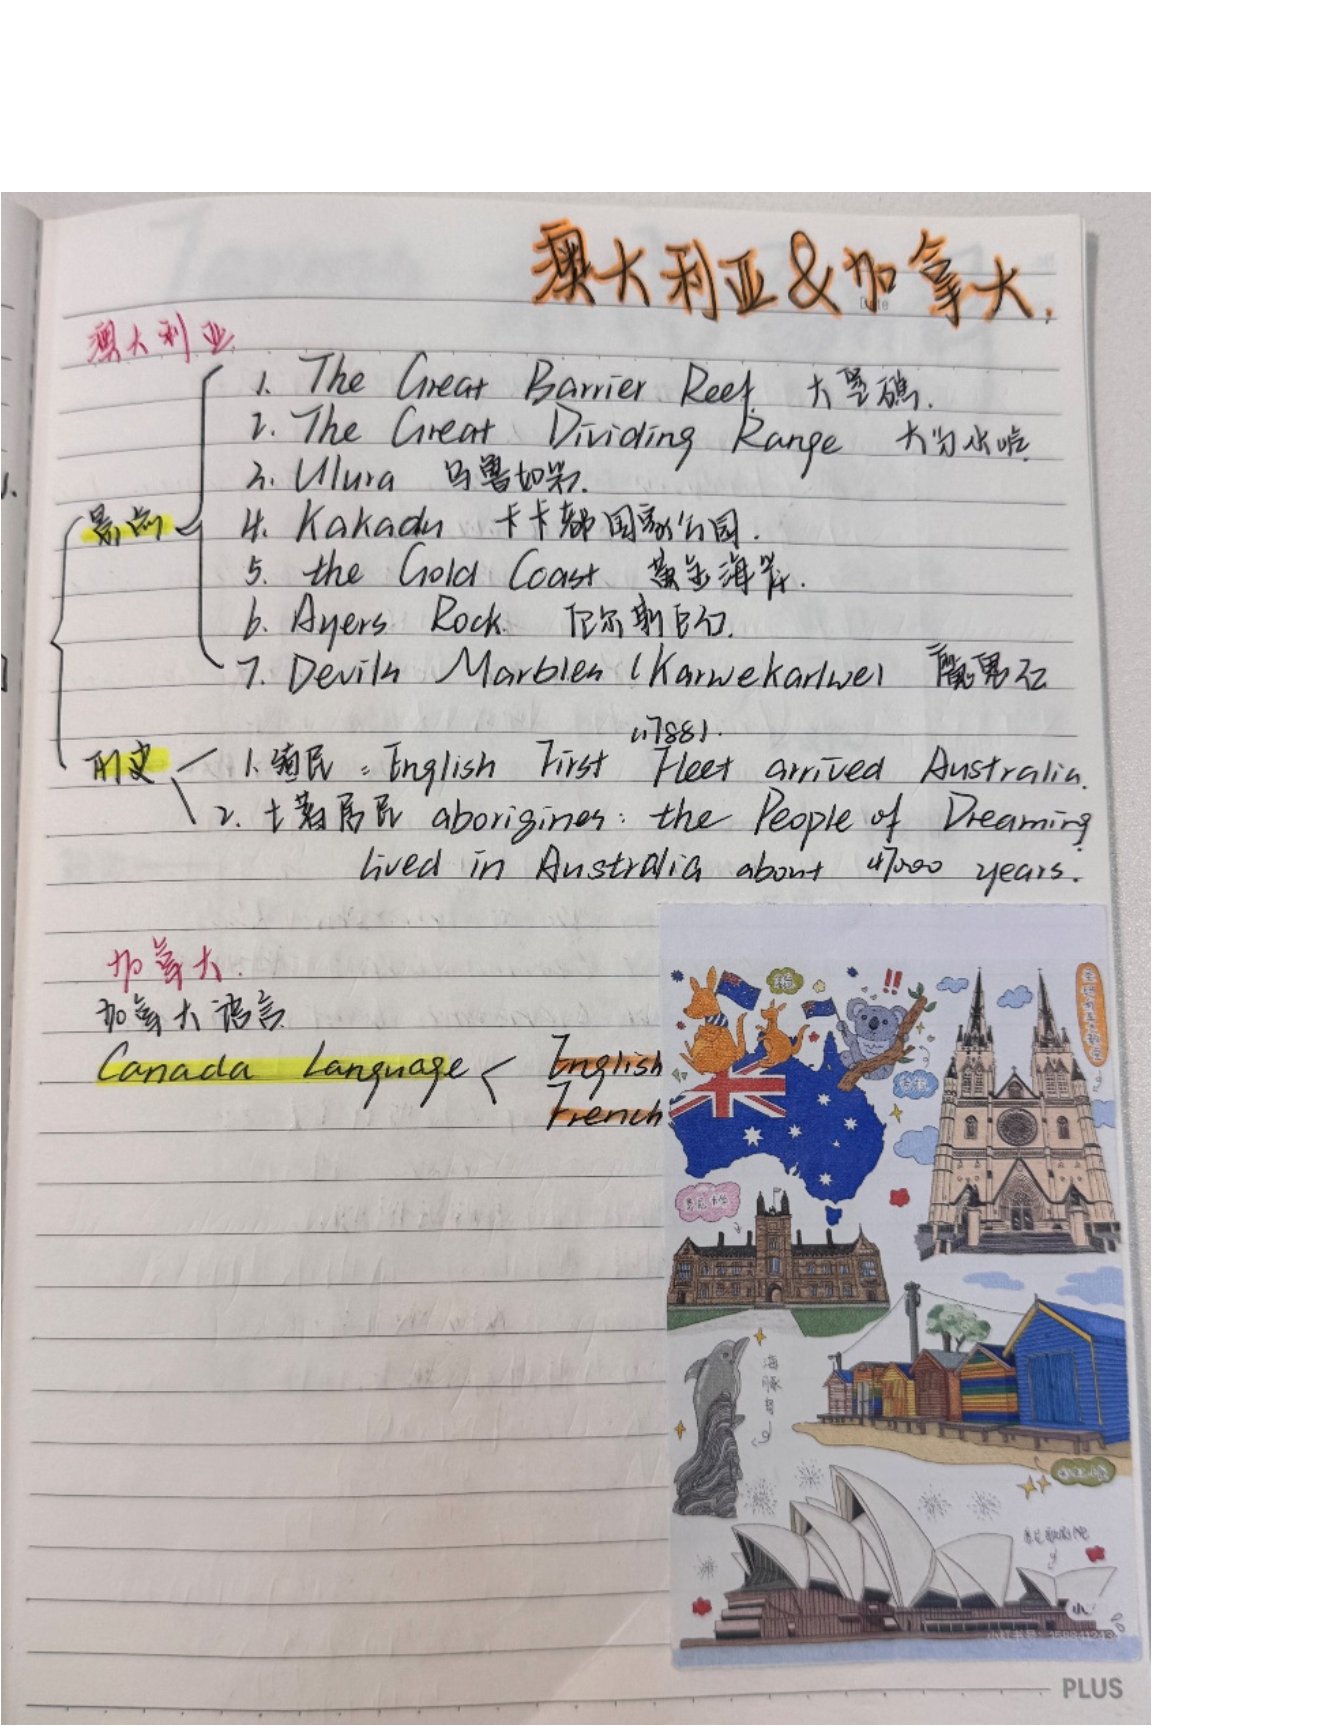 澳大利亚&加拿大.
Date
澳大利亚
1. The Great Barrier Reef 大堡礁.
2. The Great Dividing Range 大分水岭.
3. Ulura 乌鲁如
景点
4. Kakadu 卡卡都国家公园.
5. the Gold Coast 黄金海岸.
6. Ayers Rock. 尔斯巨石.
7. Devils Marbles (Karwekarlwe) 魔鬼石
(1788).
历史
1. 殖民: English First Fleet arrived Australia.
2. 土著居民 aborigines: the People of Dreaming
lived in Australia about 47000 years.
加拿大.
加拿大语言
Canada Language < English
French
海豚
悉尼歌剧院
小
PLUS